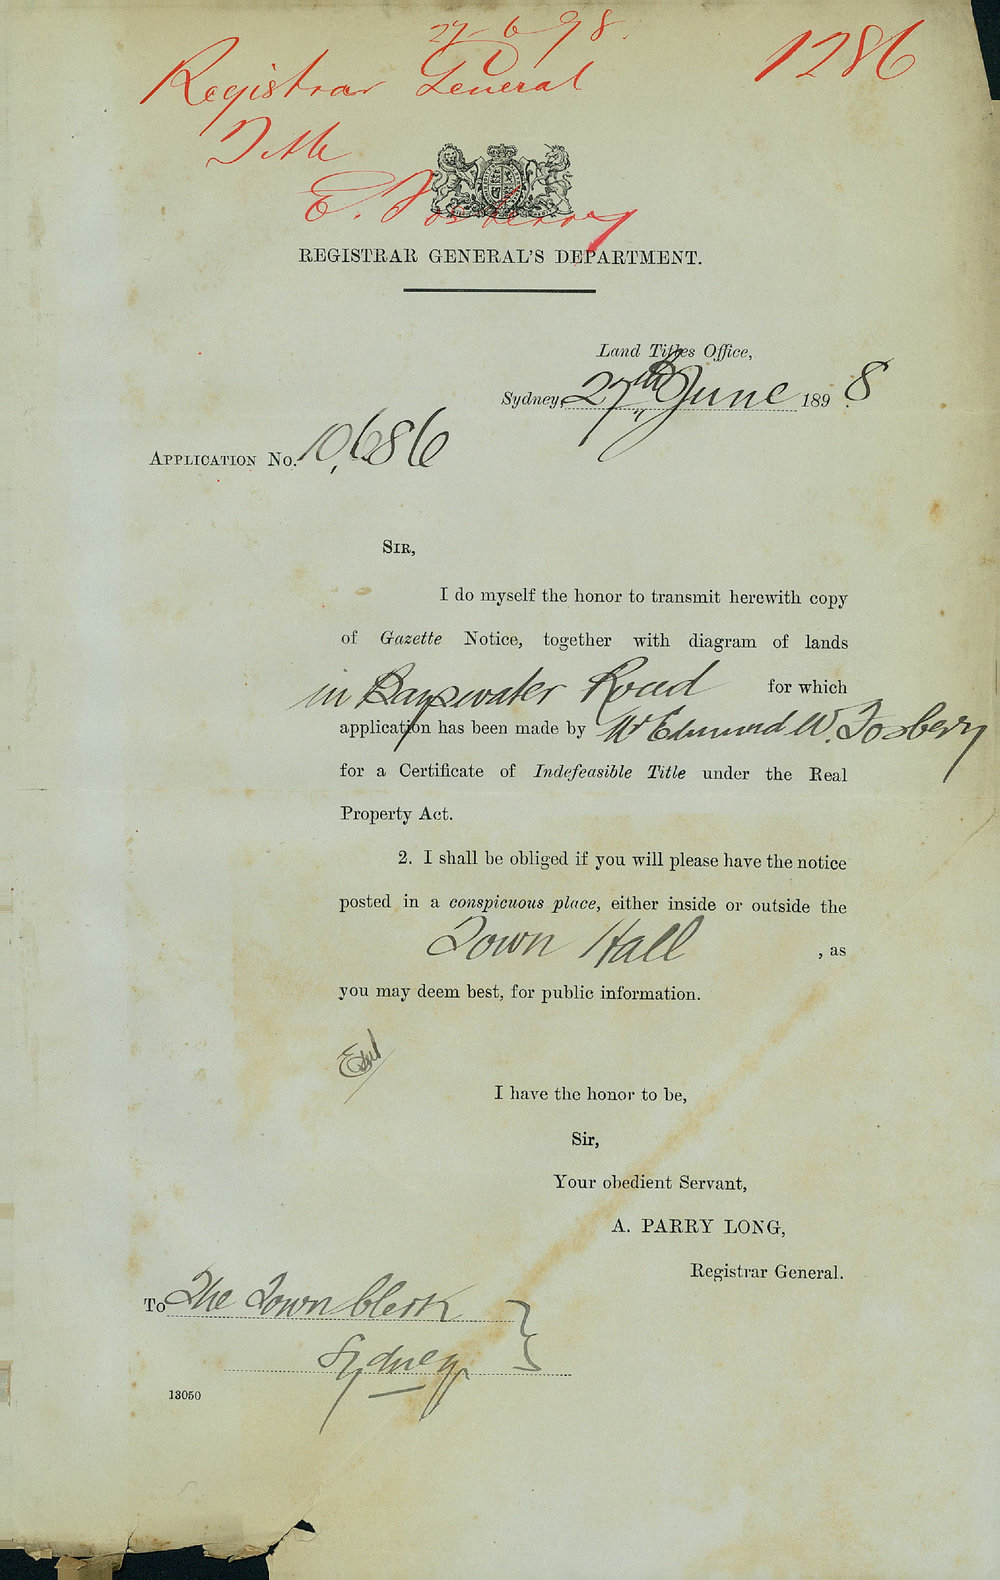 27-6-98.
1286
Registrar General
Title
E. Fosbery
REGISTRAR GENERAL'S DEPARTMENT.
Land Titles Office,
Sydney, 27th June 1898
APPLICATION No. 10,686
SIR,
I do myself the honor to transmit herewith copy
of Gazette Notice, together with diagram of lands
in Bayswater Road for which
application has been made by Mr Edmund W. Fosbery
for a Certificate of Indefeasible Title under the Real
Property Act.
2. I shall be obliged if you will please have the notice
posted in a conspicuous place, either inside or outside the
Town Hall , as
you may deem best, for public information.
I have the honor to be,
Sir,
Your obedient Servant,
A. PARRY LONG,
Registrar General.
To The Town Clerk
Sydney
13050